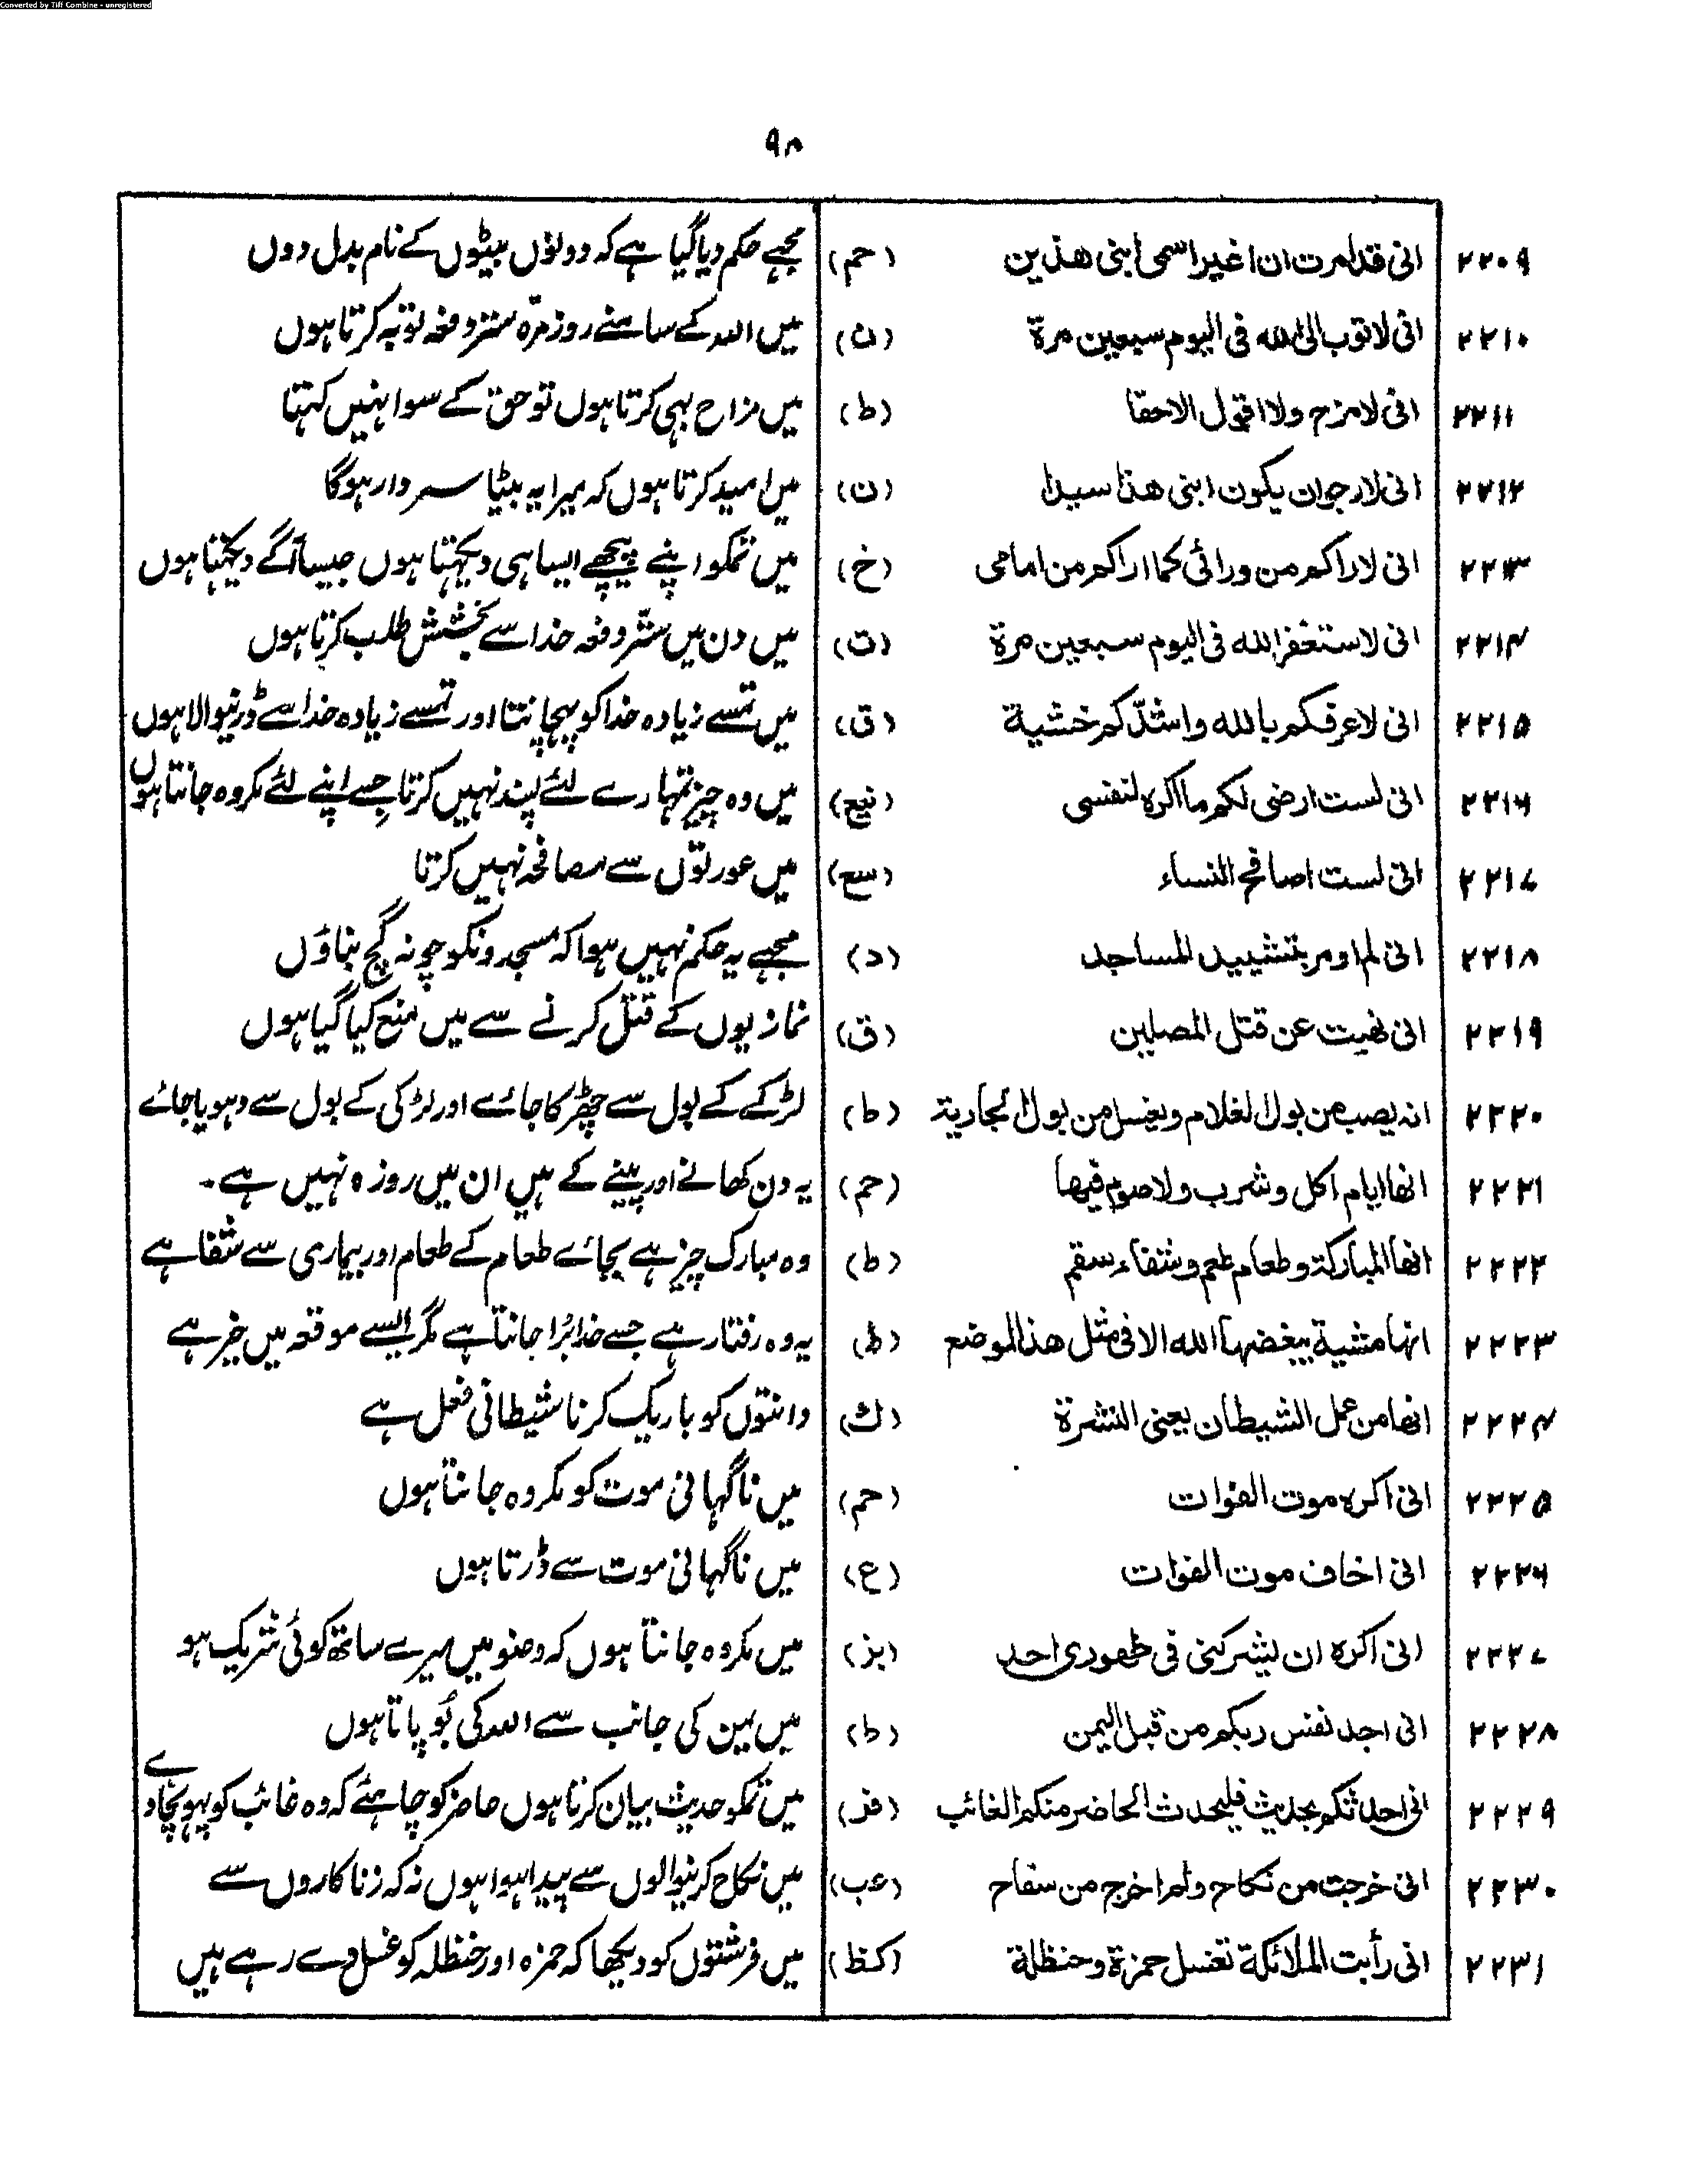 Converted by Tiff Combine - unregistered
۹۸
۲۲۰۹ انی قد امرت ان اغیر اسمی ابنی هذین (حم) مجہے حکم دیا گیا ہے کہ دونوں بیٹوں کے نام بدل دوں
۲۲۱۰ انی لاتوب الی الله فی الیوم سبعین مرة (ن) میں اللہ کے سامنے روز مرّہ ستر دفعہ توبہ کرتا ہوں
۲۲۱۱ انی لامزح ولا اقول الاحقا (ط) میں مزاح بہی کرتا ہوں تو حق کے سوا نہیں کہتا
۲۲۱۲ انی لارجو ان یکون ابنی هذا سیدا (ن) میں امید کرتا ہوں کہ میرا یہ بیٹا سردار ہوگا
۲۲۱۳ انی لاراکم من ورائی کما اراکم من امامی (خ) میں تمکو اپنے پیچھے ایسا ہی دیکہتا ہوں جیسا آگے دیکہتا ہوں
۲۲۱۴ انی لاستغفر الله فی الیوم سبعین مرة (ت) میں دن میں ستّر دفعہ خدا سے بخشش طلب کرتا ہوں
۲۲۱۵ انی لاعرفکم بالله واشدّکم خشیة (ق) میں تمسے زیادہ خدا کو پہچانتا اور تمسے زیادہ خدا سے ڈرنیوالا ہوں
۲۲۱۶ انی لست ارضی لکم ما اکره لنفسی (نیع) میں وہ چیز تمہارے لئے پسند نہیں کرتا جسے اپنے لئے مکروہ جانتا ہوں
۲۲۱۷ انی لست اصافح النساء (سع) میں عورتوں سے مصافحہ نہیں کرتا
۲۲۱۸ انی لم اومر بتشیید المساجد (د) مجہے یہ حکم نہیں ہوا کہ مسجدونکو چونہ گچ بناؤں
۲۲۱۹ انی نهیت عن قتل المصلین (ق) نمازیوں کے قتل کرنے سے میں منع کیا گیا ہوں
۲۲۲۰ انه یصب من بول الغلام ویغسل من بول الجاریة (ط) لڑکے کے بول سے چھڑکا جائے اور لڑکی کے بول سے دہویا جائے
۲۲۲۱ انها ایام اکل وشرب ولا صوم فیها (حم) یہ دن کھانے اور پینے کے ہیں ان میں روزہ نہیں ہے۔
۲۲۲۲ انها المبارکة وطعام طعم وشفاء سقم (ط) وہ مبارک چیز ہے بجائے طعام کے طعام اور بیماری سے شفا ہے
۲۲۲۳ انها مشیة یبغضها الله الا فی مثل هذا الموضع (ط) یہ وہ رفتار ہے جسے خدا بُرا جانتا ہے مگر ایسے موقعہ میں خیر ہے
۲۲۲۴ انها من عمل الشیطان یعنی النشرة (ك) دانتوں کو باریک کرنا شیطانی فعل ہے
۲۲۲۵ انی اکره موت الفوات (حم) میں ناگہانی موت کو مکروہ جانتا ہوں
۲۲۲۶ انی اخاف موت الفوات (ع) میں ناگہانی موت سے ڈرتا ہوں
۲۲۲۷ انی اکره ان یشرکنی فی طهوری احد (بز) میں مکروہ جانتا ہوں کہ وضو میں میرے ساتھ کوئی شریک ہو
۲۲۲۸ انی اجد نفس ربکم من قبل الیمن (ط) میں یمن کی جانب سے اللہ کی بُو پاتا ہوں
۲۲۲۹ انی احدثکم بحدیث فلیحدث الحاضر منکم الغائب (فر) میں تمکو حدیث بیان کرتا ہوں حاضر کو چاہئے کہ وہ غائب کو پہونچا دے
۲۲۳۰ انی خرجت من نکاح ولم اخرج من سفاح (عب) میں نکاح کرنیوالوں سے پیدا ہوا ہوں نہ کہ زنا کاروں سے
۲۲۳۱ انی رأیت الملائکة تغسل حمزة وحنظلة (کنظ) میں فرشتوں کو دیکھا کہ حمزہ اور حنظلہ کو غسل دے رہے ہیں